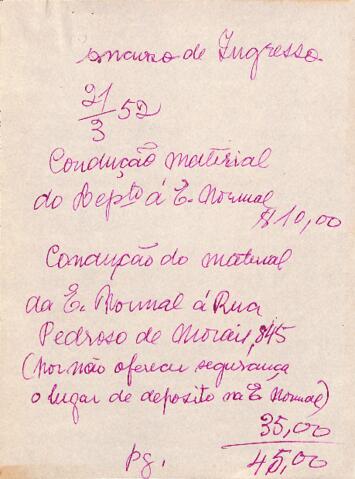 oncurso de Ingresso
21/3 52
Condução material
do Depto á E. Normal
$10,00
Condução do material
da E. Normal á Rua
Pedroso de Morais, 845
(Por não oferecer segurança
o lugar de deposito na E Normal)
35,00
pg. 45,00